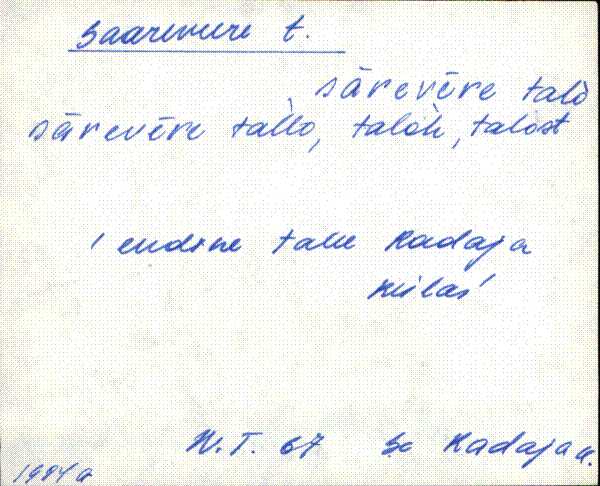 Saarevere t.
sārevēre talo
sārevēre tallo, taloh, talost
endine talu Kadaja
külas
N.T. 67 Se Kadaja k.